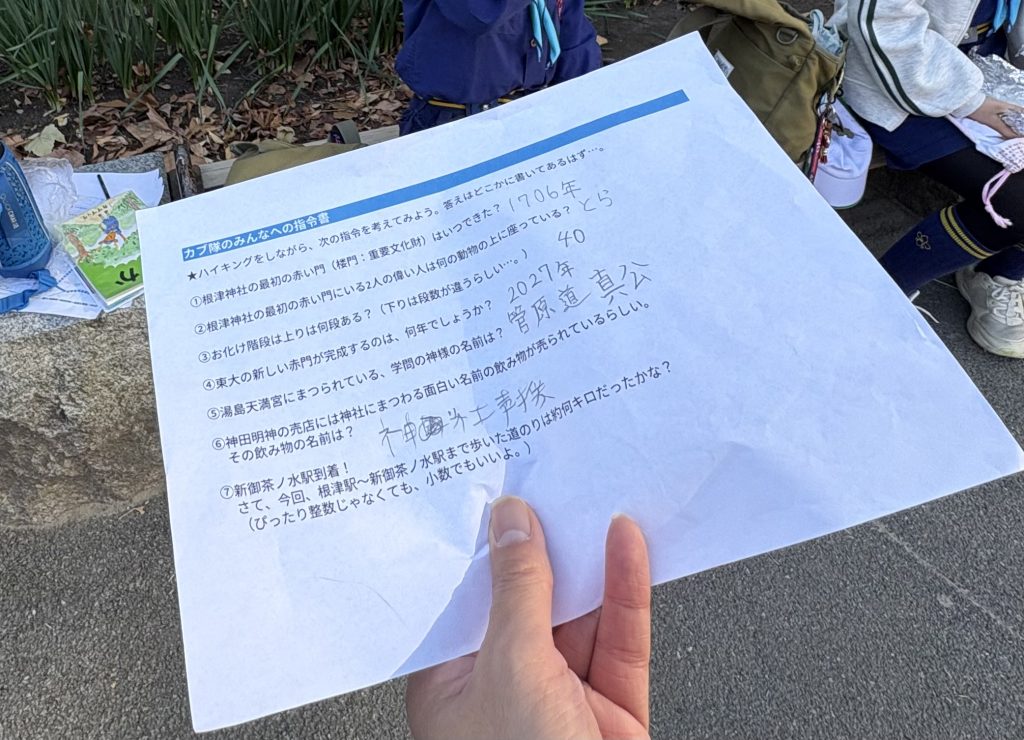 カブ隊のみんなへの指令書
★ハイキングをしながら、次の指令を考えてみよう。答えはどこかに書いてあるはず…。
①根津神社の最初の赤い門（楼門：重要文化財）はいつできた？ 1706年
②根津神社の最初の赤い門にいる2人の偉い人は何の動物の上に座っている？ とら
③お化け階段は上りは何段ある？（下りは段数が違うらしい…。） 40
④東大の新しい赤門が完成するのは、何年でしょうか？ 2027年
⑤湯島天満宮にまつられている、学問の神様の名前は？ 菅原道真公
⑥神田明神の売店には神社にまつわる面白い名前の飲み物が売られているらしい。
その飲み物の名前は？ 神
⑦新御茶ノ水駅到着！
さて、今回、根津駅～新御茶ノ水駅まで歩いた道のりは約何キロだったかな？
（ぴったり整数じゃなくても、小数でもいいよ。）
が